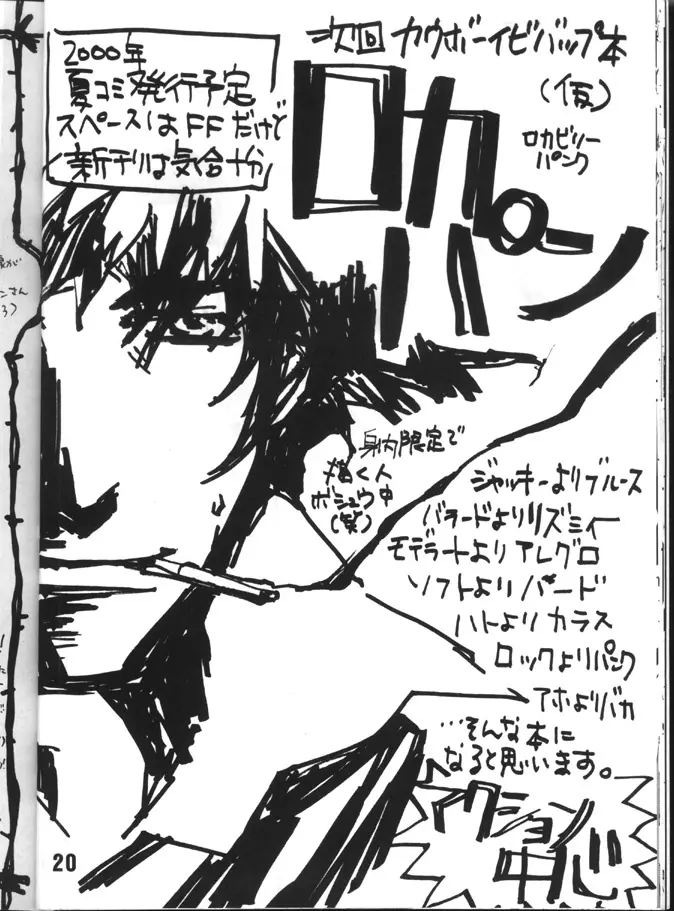 次回 カウボーイビバップ本
(仮)
ロカパン
ロカビリー
パンク
2000年
夏コミ発行予定
スペースはFFだけど
新刊は気合十分
身内限定で
描く人
ボシュウ中
(笑)
ジャッキーよりブルース
バラードよりリズミィー
モデラートよりアレグロ
ソフトよりバード
ハトよりカラス
ロックよりパンク
アホよりバカ
…そんな本に
なると思います。
アクション
中心
20